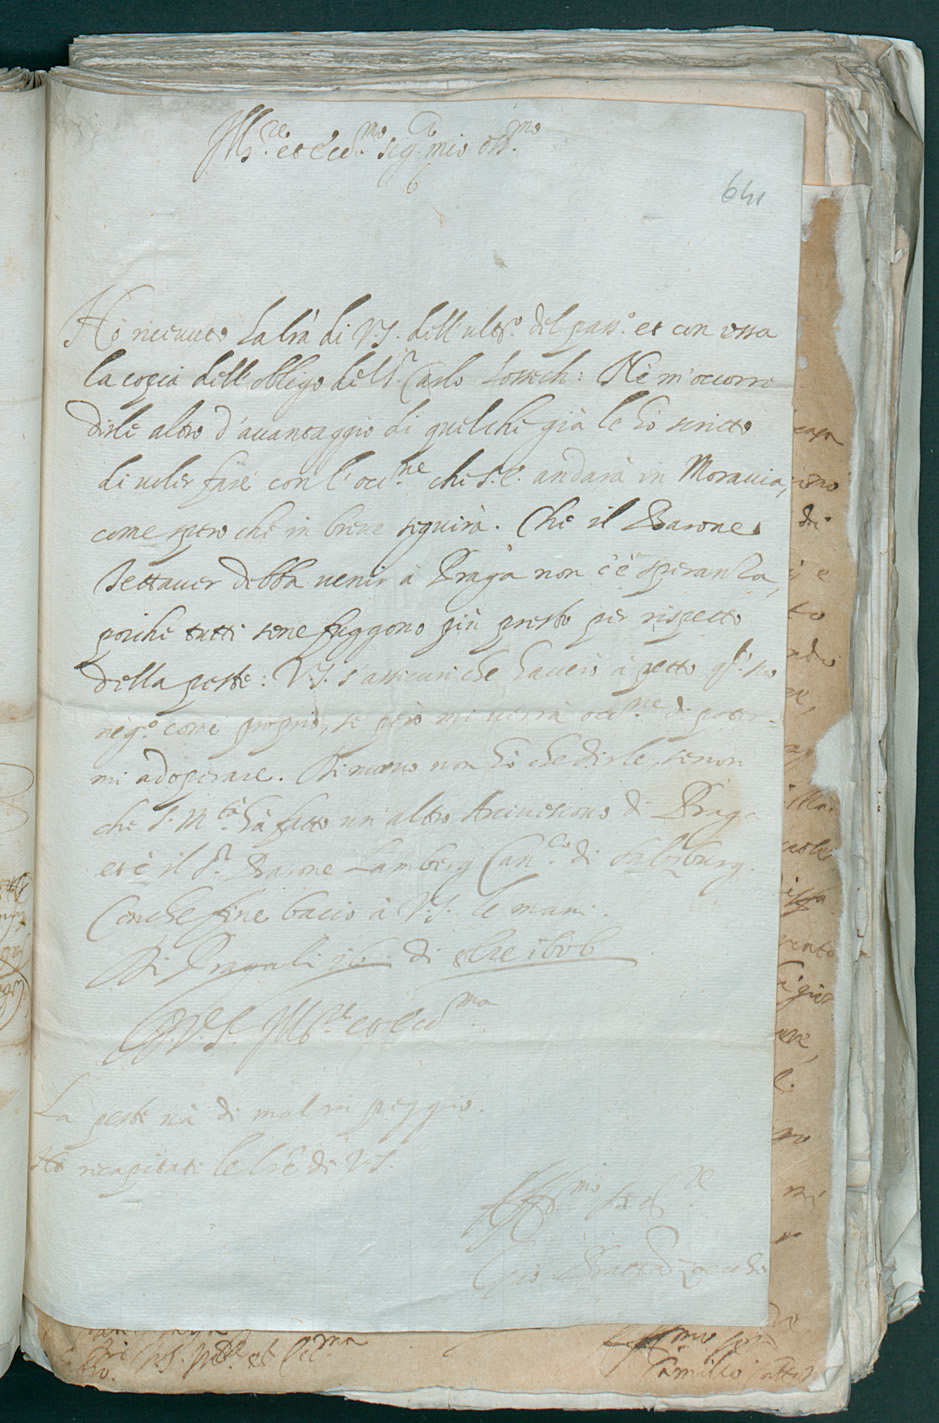 Ill.re et Ecc.mo Sig.r mio oss.mo
641
Hò riceuuto la lrã di V.S. dell'ult.o del pass.o et con essa
la copia dell'obligo del S.r Carlo : Nè m'occorre
dirle altro d'auantaggio di quelche già le hò scritto
di voler fare con l'occ.ne che S.E. andarà in Morauia,
come spero che in breue seguirà. Che il Barone
debba uenir à Praga non c'è speranza,
poiche tutti sene fuggono più presto per rispetto
della peste: V.S. s'assicuri che hauerò à petto q.sto suo
neg.o come proprio, se però mi uerrà occ.ne di poter-
mi adoperare. Di nuouo non hò che dirle, senon
che S.M.tà hà fatto un'altro Arciuescouo di Praga
et è il S.r Barone Lamberg Can.co di Salzburg.
Con che fine bacio à V.S. le mani.
Di Praga li di 8bre 1606
Di V.S. Ill.re et Ecc.ma
La peste uà di mal in peggio.
Hò recapitate le lrẽ di V.S.
Aff.mo ser.re
Gio.